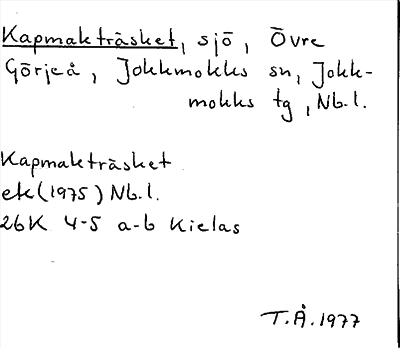 Kapmakträsket, sjö, Övre
Görjeå, Jokkmokks sn, Jokk-
mokks tg, Nb.l.
Kapmakträsket
ek(1975) Nb.l.
26K 4-5 a-b Kielas
T.Å.1977